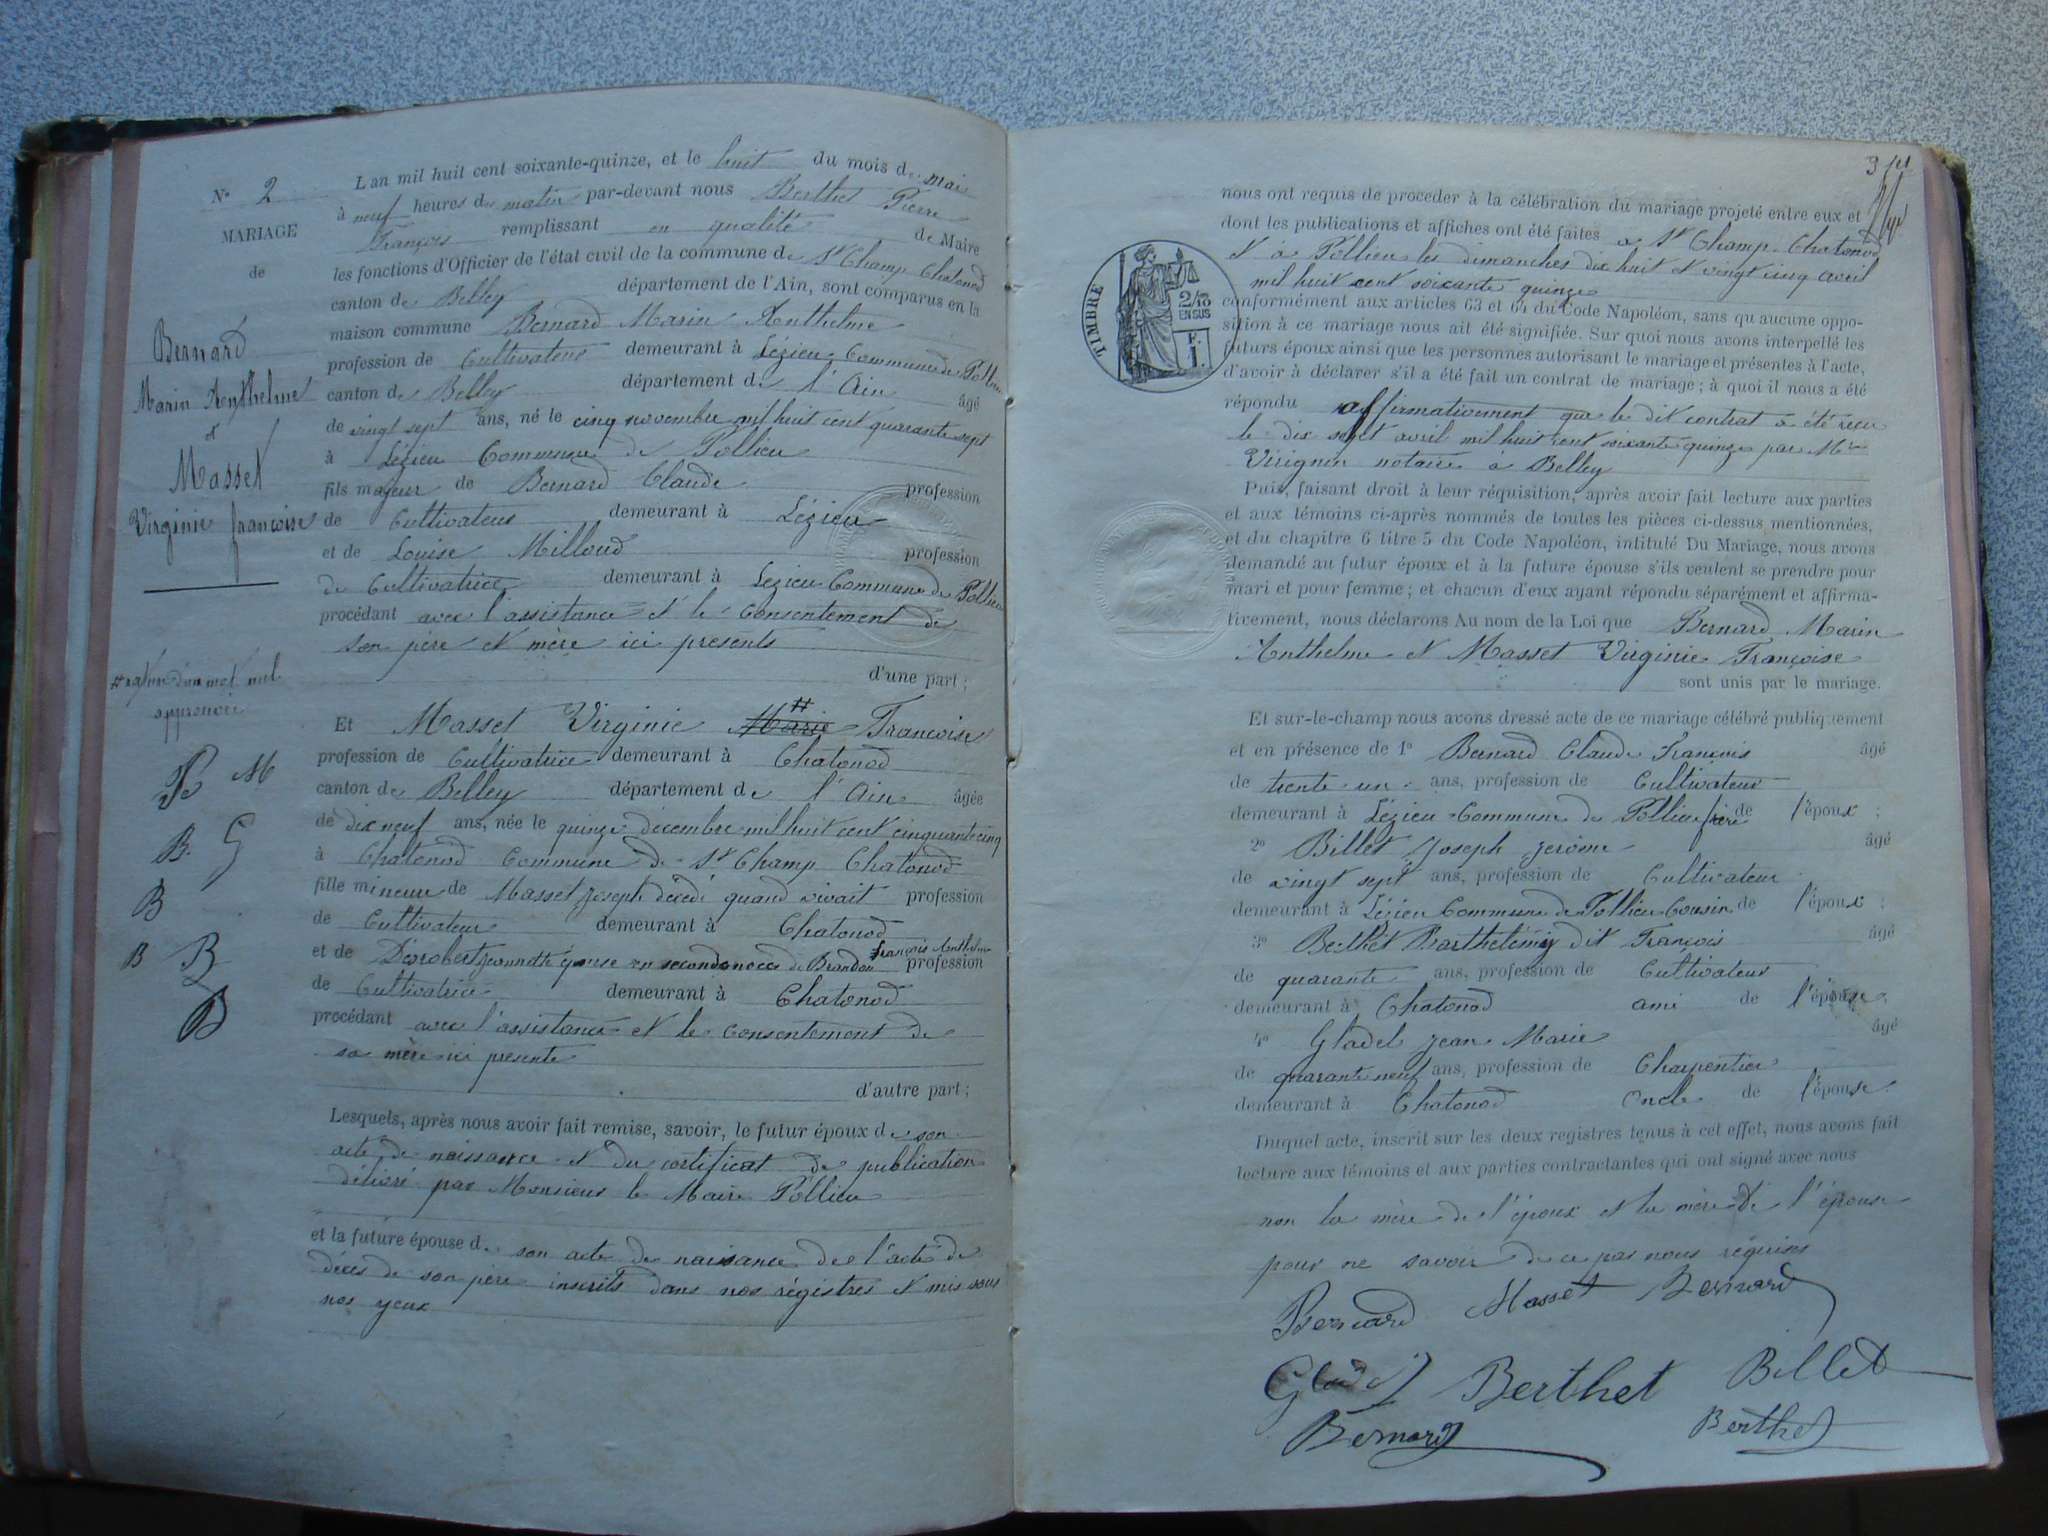 N° 2
MARIAGE
de
Bernard
Marin Anthelme
et
Masset
Virginie françoise
# rature d'un mot nul
approuvée
B M
B. G
B
B B
B
L'an mil huit cent soixante-quinze, et le huit du mois de mai
à neuf heures du matin par-devant nous Berthet Pierre
François remplissant en qualité de Maire
les fonctions d'Officier de l'état civil de la commune de St Champ Chatonod
canton de Belley département de l'Ain, sont comparus en la
maison commune Bernard Marin Anthelme
profession de Cultivateur demeurant à Lézieu Commune de Pollieu
canton de Belley département de l'Ain âgé
de vingt sept ans, né le cinq novembre mil huit cent quarante sept
à Lézieu Commune de Pollieu
fils majeur de Bernard Claude profession
de Cultivateur demeurant à Lézieu
et de Louise Milloud profession
de Cultivatrice demeurant à Lezieu Commune de Pollieu
procédant avec l'assistance et le consentement de
son père et mère ici présents
d'une part ;
Et Masset Virginie Marie # Francoise
profession de Cultivatrice demeurant à Chatonod
canton de Belley département de l'Ain âgée
de dix neuf ans, née le quinze décembre mil huit cent cinquante cinq
à Chatonod Commune de St Champ Chatonod
fille mineure de Masset Joseph décédé quand vivait profession
de Cultivateur demeurant à Chatonod
et de Désrobert Jeannette épouse en secondes noces de Brandon François Anthelme profession
de Cultivatrice demeurant à Chatonod
procédant avec l'assistance et le consentement de
sa mère ici présente
d'autre part ;
Lesquels, après nous avoir fait remise, savoir, le futur époux de son
acte de naissance et du certificat de publication
délivré par Monsieur le Maire Pollieu
et la future épouse d. son acte de naissance de l'acte de
décès de son père inscrits dans nos régistres et mis sous
nos yeux
3
nous ont requis de proceder à la célébration du mariage projeté entre eux et
dont les publications et affiches ont été faites à St Champ-Chatonod
et à Pollieu les dimanches dix huit et vingt cinq avril
mil huit cent soixante quinze
conformément aux articles 63 et 64 du Code Napoléon, sans qu'aucune oppo-
sition à ce mariage nous ait été signifiée. Sur quoi nous avons interpellé les
futurs époux ainsi que les personnes autorisant le mariage et présentes à l'acte,
d'avoir à déclarer s'il a été fait un contrat de mariage ; à quoi il nous a été
répondu affirmativement que le dit contrat a été reçu
le dix sept avril mil huit cent soixante quinze par Me
Virignin notaire à Belley
TIMBRE
2/10
EN SUS
F.
1.
Puis, faisant droit à leur réquisition, après avoir fait lecture aux parties
et aux témoins ci-après nommés de toutes les pièces ci-dessus mentionnées,
et du chapitre 6 titre 5 du Code Napoléon, intitulé Du Mariage, nous avons
demandé au futur époux et à la future épouse s'ils veulent se prendre pour
mari et pour femme ; et chacun d'eux ayant répondu séparément et affirma-
tivement, nous déclarons Au nom de la Loi que Bernard Marin
Anthelme et Masset Virginie Françoise
sont unis par le mariage.
Et sur-le-champ nous avons dressé acte de ce mariage célébré publiquement
et en présence de 1° Bernard Claude François âgé
de trente un ans, profession de Cultivateur
demeurant à Lézieu Commune de Pollieu frère de l'époux ;
2° Billet Joseph Jérôme âgé
de vingt sept ans, profession de Cultivateur
demeurant à Lézieu Commune de Pollieu Cousin de l'époux ;
3° Berthet Barthélemy dit François âgé
de quarante ans, profession de Cultivateur
demeurant à Chatonod ami de l'épouse,
4° Gladel Jean Marie âgé
de quarante neuf ans, profession de Charpentier
demeurant à Chatonod Oncle de l'épouse.
Duquel acte, inscrit sur les deux registres tenus à cet effet, nous avons fait
lecture aux témoins et aux parties contractantes qui ont signé avec nous
non la mère de l'époux et la mère de l'épouse
pour ne savoir de ce par nous requises
Bernard Masset Bernard
Gladel Berthet Billet
Bernard Berthet